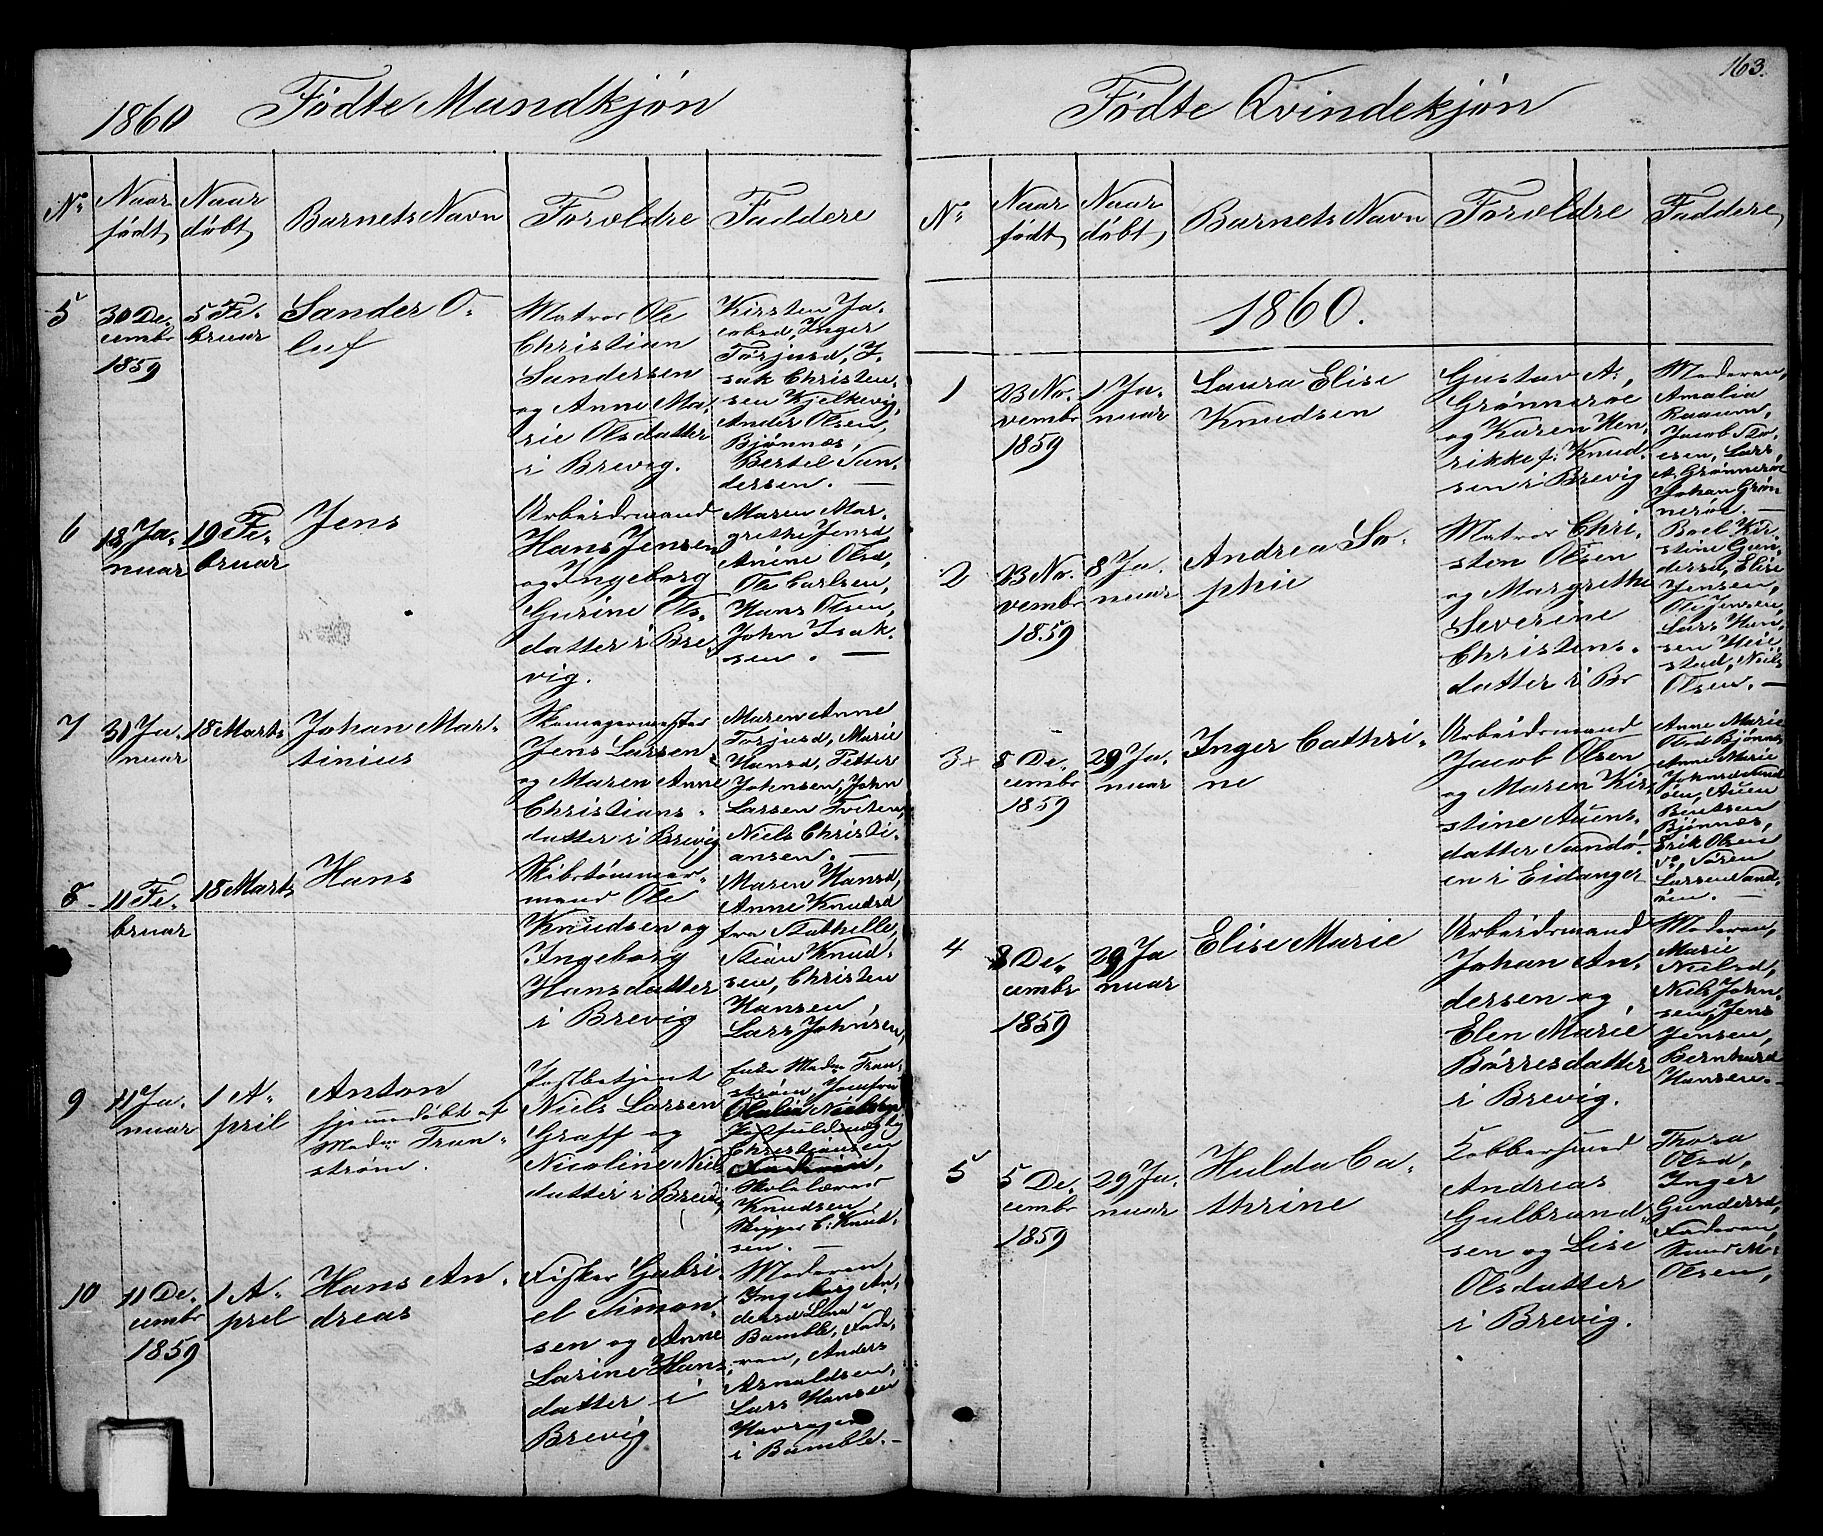 1860 Fødte Mandkjøn
No
Naar født
Naar døbt
Barnets Navn
Forældre
Faddere
5
30 De-
cembr
1859
5 Fe-
bruar
Sander O-
luf
Matros Ole
Christian
Sandersen
og Anne Ma-
rie Olsdatter
i Brevig.
Kirsten Ja-
cobsd, Inger
Torjusd, I-
sak Christen-
sen Kjelkevig,
Ander Olsen
Bjønnes,
Bertel San-
dersen. —
6
18 Ja-
nuar
19 Fe-
bruar
Jens
Arbeidsmand
Hans Jensen
og Ingeborg
Gurine Ols-
datter i Bre-
vig.
Maren Mar-
grethe Jensd
Anine Olsd,
Ole Carlsen,
Hans Olsen,
John Isak-
sen. —
7
31 Ja-
nuar
18 Marts
Johan Mar-
tinius
Skomagermester
Jens Larsen
og Maren Anne
Christians-
datter i Brevig
Maren Anne
Torjusd, Marie
Hansd, Petter
Johnsen, John
Larsen
Niels Christi-
ansen. —
8
11 Fe-
bruar
18 Marts
Hans
Skibstømmer-
mand Ole
Knudsen og
Ingeborg
Hansdatter
i Brevig
Maren Hansd,
Anne Knudsd
fra Stathelle,
Stian Knud-
sen, Christen
Hansen,
Lars Johnsen,
9
11 Ja-
nuar
1 A-
pril
Anton
hjemmedøbt af
Madm Fran-
strøm.
Postbetjent
Niels Larsen
Graff og
Nicoline Niels
datter i Brevig
Enke Madm Fran-
strøm, Jomfru
Nielsen
Christiansen
Skolelærer
Knudsen,
Skipper C: Knud-
sen. —
10
11 De-
cembr
1859
1 A-
pril
Hans An-
dreas
Fisker Gabri-
el Simon-
sen og Anne
Larine Hans-
datter i
Brevig
Moderen,
Ingeborg An-
dersd
Bamble, Fade-
ren, Anders
Arnoldsen,
Lars Hansen
i Bamble. —
163.
Fødte Qvindekjøn
No
Naar født
Naar døbt
Barnets Navn
Forældre
Faddere
1860.
1
23 No-
vembr
1859
1 Ja-
nuar
Laura Elise
Knudsen
Gustav A.
Grønnerøe
og Karen Hen-
rikke f. Knud-
sen i Brevig
Moderen,
Amalia
Raaum,
Jacob
Lars
A. Grønnerøe
Johan Grøn-
nerøe. —
2
23 No-
vembr
1859
8 Ja-
nuar
Andrea So-
phie
Matros Chri-
sten Olsen
og Margrethe
Severine
Christens-
datter i Br
Boel Kir-
stine Gun-
dersd, Elise
Jensen,
Ole Jensen,
Lars Han-
sen Hei-
stad, Niels
Olsen. —
3 +
8 De-
cembr
1859
29 Ja-
nuar
Inger Cathri-
ne
Arbeidsmand
Jacob Olsen
og Maren Kir-
stine Auens-
datter Sandø-
en i Eidanger
Anne Marie
Olsd Bjønnes
Anne Marie
Johnsd Sand-
øen, Auen
Bentsen
Bjønnes,
Erik Olsen
Søren
Larsen Sand-
øen. —
4
8 De-
cembr
1859
29 Ja
nuar
Elise Marie
Arbeidsmand
Johan An-
dersen og
Elen Marie
Børresdatter
i Brevig.
Moderen,
Marie
Nielsd,
Niels John-
sen, Jens
Jensen,
Bernhard
Hansen. —
5
5 De-
cembr
1859
29 Ja-
nuar
Hulda Ca-
thrine
Kobbersmed
Andreas
Gulbrand-
sen og Lise
Olsdatter
i Brevig.
Thora
Olsd,
Inger
Gundersd,
Faderen,
Knud
Olsen,